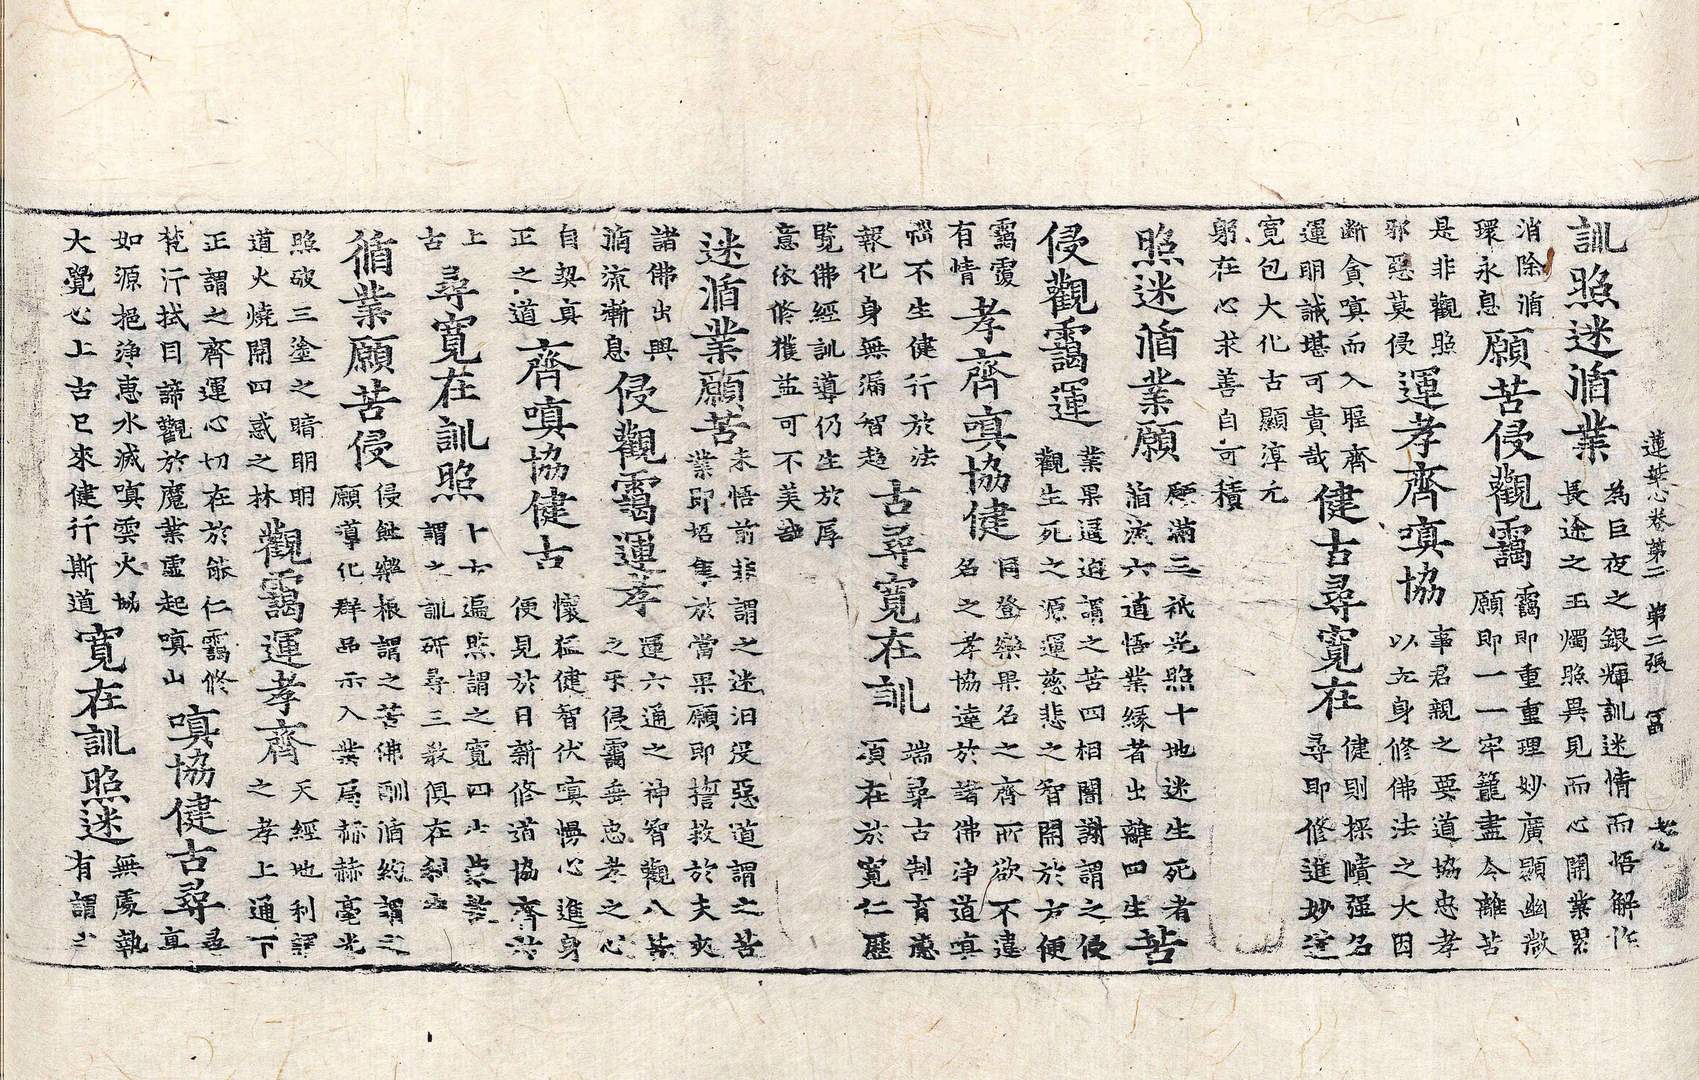 蓮華心卷第二 第二張 冨
訓照迷循業
為巨夜之銀輝訓迷情而悟解作
長途之玉燭照異見而心開業累
消除循
環永息
願苦侵觀靄
靄即重重理妙廣顯幽微
願即一一牢籠盡令離苦
是非觀照
邪惡莫侵
運孝齊嗔協
事君親之要道協忠孝
以立身修佛法之大因
斷貪嗔而入聖齊
運明誠堪可貴哉
健古尋寬在
健則探賾强名
尋即修進妙逹
寬包大化古顯淳元
躬在心求善自可積
照迷循業願
願滿三祇光照十地迷生死者
循流六道悟業緣者出離四生
苦
侵觀靄運
業果遥迢謂之苦四相闇謝謂之侵
觀生死之源運慈悲之智開於方便
靄覆
有情
孝齊嗔協健
同登樂果名之齊所欲不違
名之孝協達於諸佛浄道嗔
惱不生健行於法
報化身無漏智起
古尋寬在訓
端尋古制育德
須在於寬仁歷
覽佛經訓導仍生於厚
意依修獲益可不美哉
迷循業願苦
未悟前非謂之迷汩没惡道謂之苦
業即悟於當果願即誓救於
諸佛出興
循流漸息
侵觀靄運孝
運六通之神智觀八苦
之乎侵靄垂忠孝之心
自契真
正之道
齊嗔協健古
懷猛健智伏嗔慢心進身
便見於日新修道協齊
上
古
尋寬在訓照
遍照謂之寬四
謂之訓研尋三教俱在利
循業願苦侵
侵樂根謂之苦佛訓循約謂之
願導化群品示入業居赫赫毫光
照破三塗之暗明明
道火燒開四惑之林
觀靄運孝齊
天經地利謂
之孝上通下
正謂之齊運心切在於能仁靄修
梵行拭目諦觀於魔業虛起嗔山
嗔協健古尋
尋
真
如源挹浄惠水滅嗔雲火協
大覺心上古已來健行斯道
寬在訓照迷
無處執
有謂之